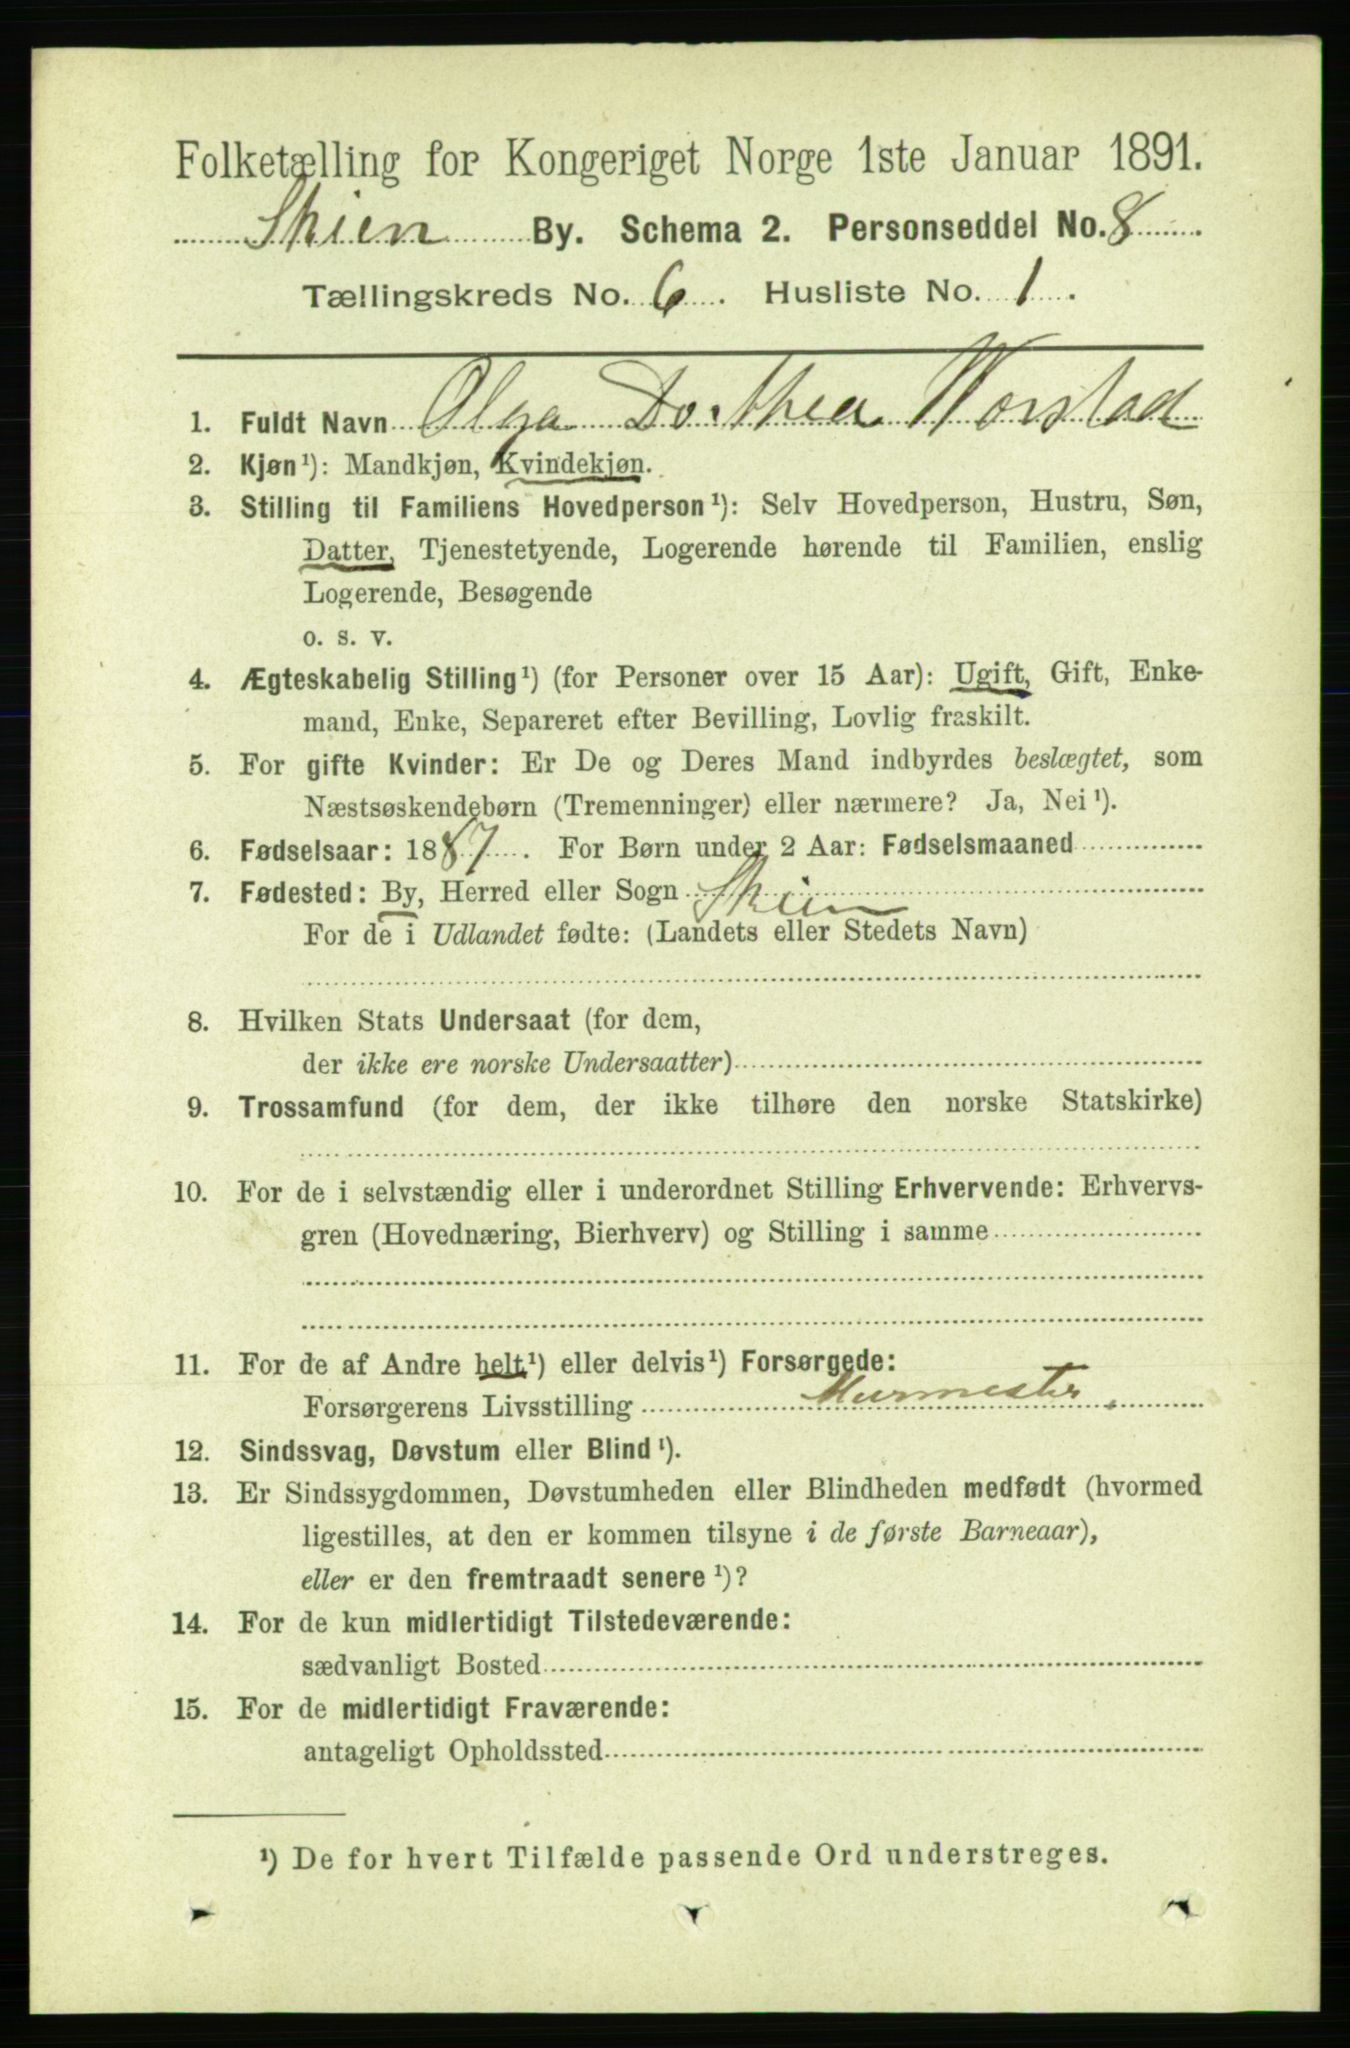 Folketælling for Kongeriget Norge 1ste Januar 1891.
Skien By. Schema 2. Personseddel No. 8
Tællingskreds No. 6. Husliste No. 1.
1. Fuldt Navn Olga Dorthea Norstad
2. Kjøn¹): Mandkjøn, Kvindekjøn.
3. Stilling til Familiens Hovedperson¹): Selv Hovedperson, Hustru, Søn,
Datter, Tjenestetyende, Logerende hørende til Familien, enslig
Logerende, Besøgende
o. s. v.
4. Ægteskabelig Stilling¹) (for Personer over 15 Aar): Ugift, Gift, Enke-
mand, Enke, Separeret efter Bevilling, Lovlig fraskilt.
5. For gifte Kvinder: Er De og Deres Mand indbyrdes beslægtet, som
Næstsøskendebørn (Tremenninger) eller nærmere? Ja, Nei¹).
6. Fødselsaar: 1887. For Børn under 2 Aar: Fødselsmaaned
7. Fødested: By, Herred eller Sogn Skien
For de i Udlandet fødte: (Landets eller Stedets Navn)
8. Hvilken Stats Undersaat (for dem,
der ikke ere norske Undersaatter)
9. Trossamfund (for dem, der ikke tilhøre den norske Statskirke)
10. For de i selvstændig eller i underordnet Stilling Erhvervende: Erhvervs-
gren (Hovednæring, Bierhverv) og Stilling i samme
11. For de af Andre helt¹) eller delvis¹) Forsørgede:
Forsørgerens Livsstilling Murmester.
12. Sindssvag, Døvstum eller Blind¹).
13. Er Sindssygdommen, Døvstumheden eller Blindheden medfødt (hvormed
ligestilles, at den er kommen tilsyne i de første Barneaar),
eller er den fremtraadt senere¹)?
14. For de kun midlertidigt Tilstedeværende:
sædvanligt Bosted
15. For de midlertidigt Fraværende:
antageligt Opholdssted
¹) De for hvert Tilfælde passende Ord understreges.